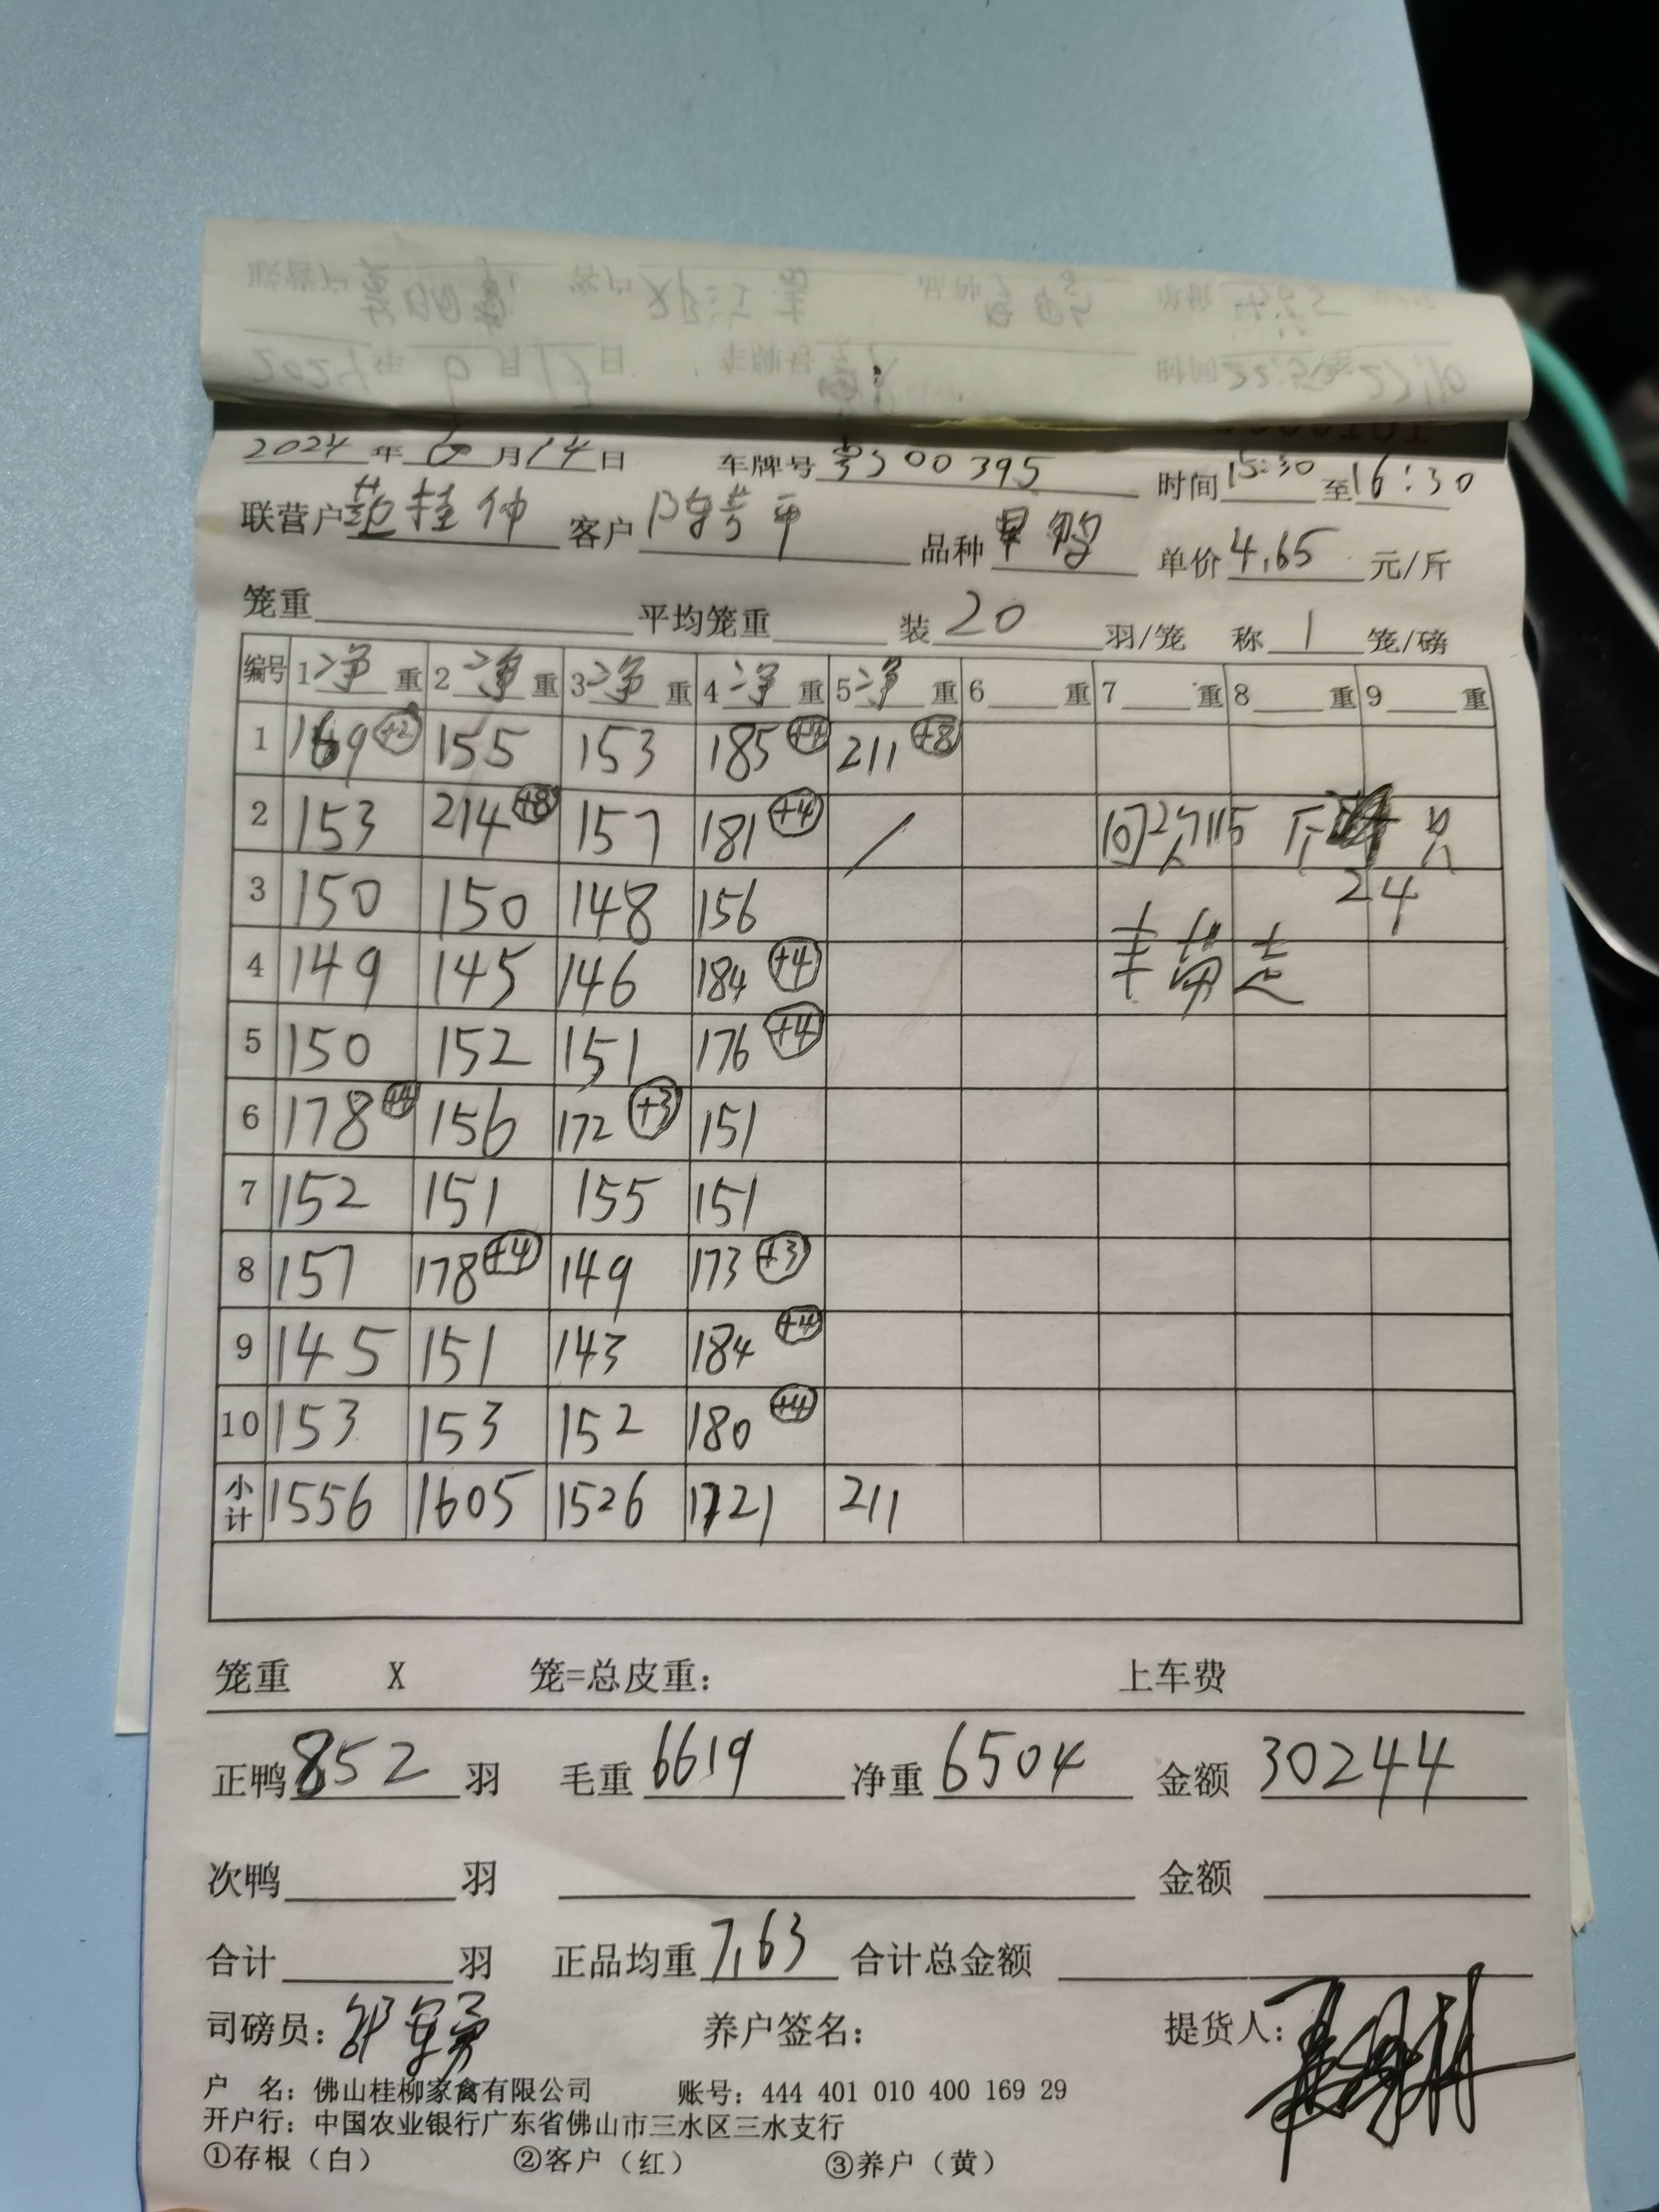 2024年6月14日 车牌号粤S00395 时间15:30至16:30
联营户范桂仲 客户陈考平 品种 单价4.65元/斤
笼重 平均笼重 装20羽/笼 称1笼/磅
编号 1净重 2净重 3净重 4净重 5净重 6重 7重 8重 9重
1 169(+2) 155 153 185(+4) 211(+8)
2 153 214(+8) 157 181(+4) / 回次115斤 只
3 150 150 148 156 24
4 149 145 146 184(+4)
5 150 152 151 176(+4)
6 178(+4) 156 172(+3) 151
7 152 151 155 151
8 157 178(+4) 149 173(+3)
9 145 151 143 184(+4)
10 153 153 152 180(+4)
小计 1556 1605 1526 1721 211
笼重 X 笼=总皮重: 上车费
正鸭852羽 毛重6619 净重6504 金额30244
次鸭 羽 金额
合计 羽 正品均重7.63 合计总金额
司磅员: 养户签名: 提货人:
户 名: 佛山桂柳家禽有限公司 账号: 444 401 010 400 169 29
开户行: 中国农业银行广东省佛山市三水区三水支行
①存根（白） ②客户（红） ③养户（黄）